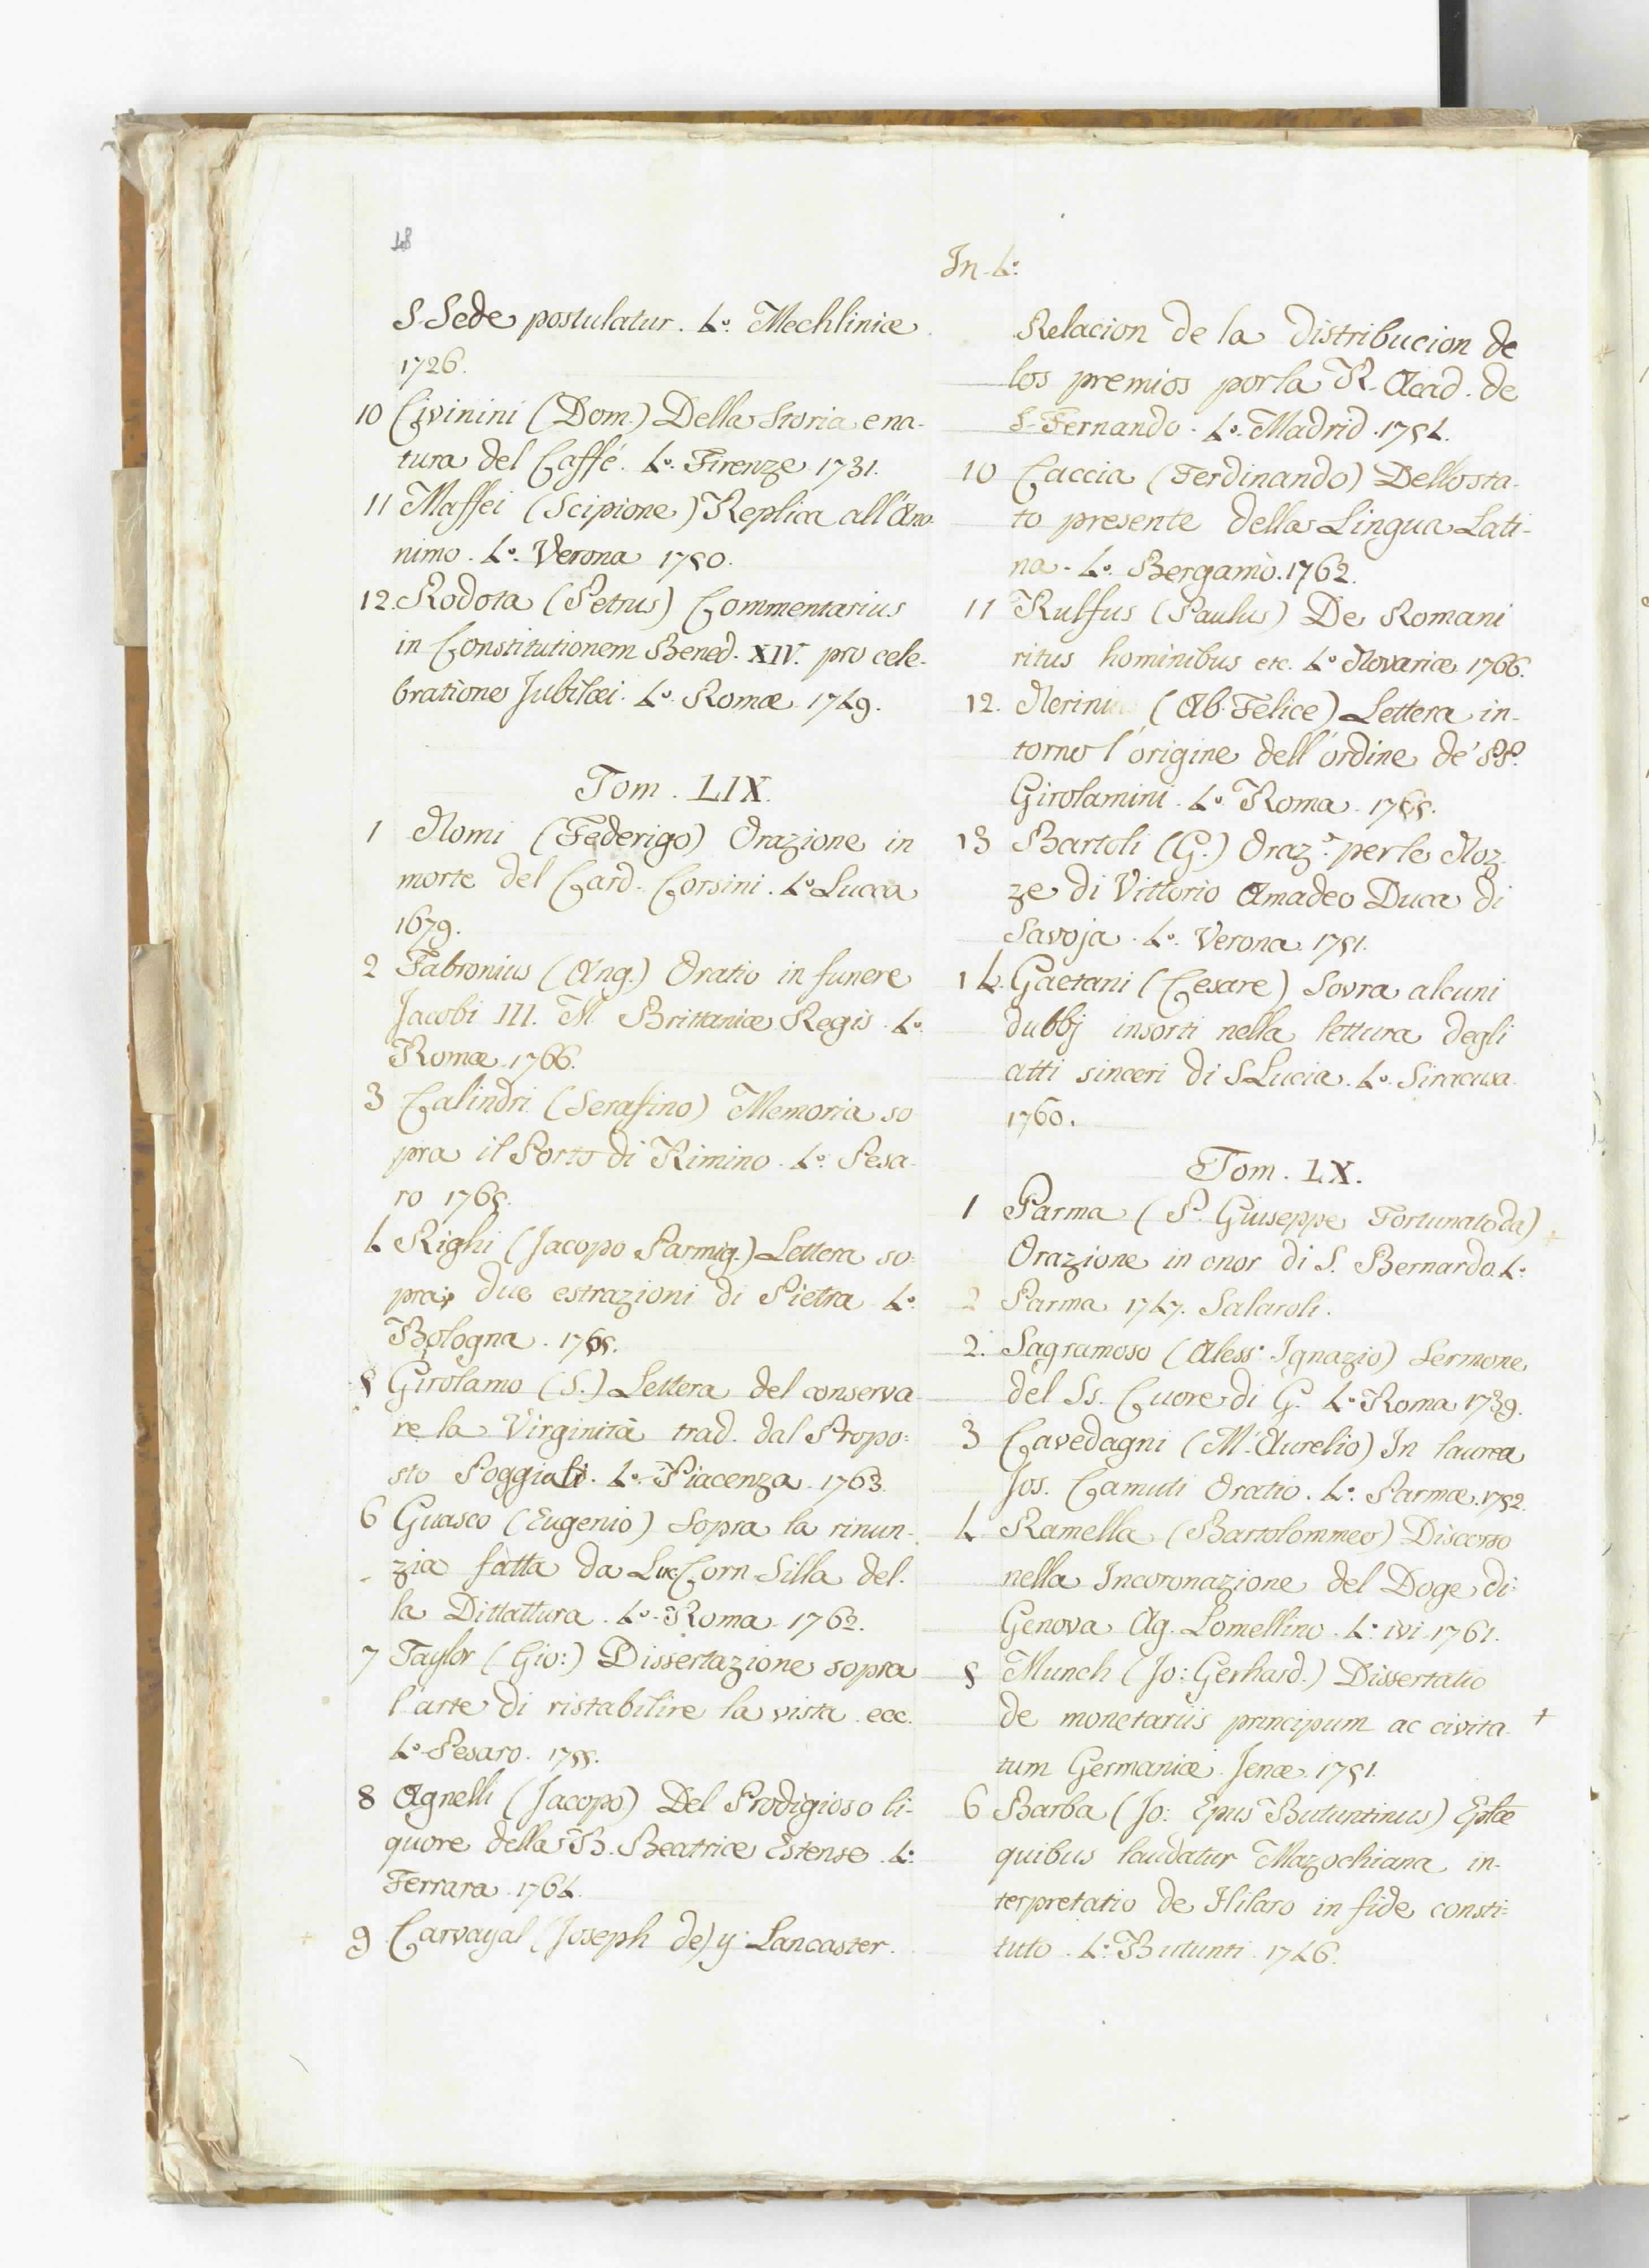 48
In 4°.
S. Sede postulatur. 4°. Mechliniæ
1726.
10 Civinini (Dom.) Della Storia e na-
tura del Caffé. 4°. Firenze 1731.
11 Maffei (Scipione) Replica all'Ano-
nimo. 4°. Verona 1750.
12. Rodota (Petrus) Commentarius
in Constitutionem Bened. XIV. pro cele-
bratione Jubilæi. 4°. Romæ 1749.
Tom. LIX.
1 Nomi (Federigo) Orazione in
morte del Card. Corsini. 4° Lucca
1679.
2 Fabronius (Ang.) Oratio in funere
Jacobi III. M. Brittaniæ Regis. 4°.
Romæ 1766.
3 Calindri (Serafino) Memoria so
pra il Porto di Rimino. 4°. Pesa-
ro 1765.
4 Righi (Jacopo Parmig.) Lettera so-
pra due estrazioni di Pietra 4°.
Bologna. 1765.
5 Girolamo (S.) Lettera del conserva-
re la Virginità trad. dal Propo-
sto Poggiali. 4°. Piacenza. 1763.
6 Guasco (Eugenio) Sopra la rinun-
zia fatta da Luc. Corn Silla del-
la Dittattura. 4°. Roma 1762.
7 Taylor (Gio:) Dissertazione sopra
l'arte di ristabilire la vista ecc.
4° Pesaro. 1755.
8 Agnelli (Jacopo) Del Prodigioso li-
quore della B. Beatrice Estense. 4°.
Ferrara 1764.
9 Carvayal (Joseph de) y Lancaster.
Relacion de la distribucion de
los premios por la R. Acad. de
S. Fernando. 4°. Madrid. 1754.
10 Caccia (Ferdinando) Dello sta-
to presente della Lingua Lati-
na. 4°. Bergamò. 1762.
11 Rulfus (Paulus) De Romani
ritus hominibus etc. 4° Novariæ 1766.
12. Nerini (Ab. Felice) Lettera in-
torno l'origine dell'ordine de' PP.
Girolamini. 4°. Roma. 1755.
13 Bartoli (G.) Oraz.e per le Noz-
ze di Vittorio Amadeo Duca di
Savoja. 4°. Verona 1751.
14. Gaetani (Cesare) Sovra alcuni
dubbj insorti nella lettura degli
atti sinceri di S Lucia. 4°. Siracusa
1760.
Tom. LX.
1 Parma (P. Giuseppe Fortunato da)
Orazione in onor di S. Bernardo. 4°.
2 Parma 1747. Salaroli.
2. Sagramoso (Aless. Ignazio) Sermone
del Ss. Cuore di G. 4° Roma 1739.
3 Cavedagni (M. Aurelio) In laurea
Jos. Camuti Oratio. 4°. Parmæ. 1752.
4 Ramella (Bartolommeo) Discorso
nella Incoronazione del Doge di
Genova Ag. Lomellino. 4°. ivi 1761.
5 Munch (Jo: Gerhard.) Dissertatio
de monetariis principum ac civita- +
tum Germaniæ. Jenæ. 1751.
6 Barba (Jo: Epus Butuntinus) Eplæ
quibus laudatur Mazochiana in-
terpretatio de Hilaro in fide consti-
tuto. 4°. Butunti. 1746.